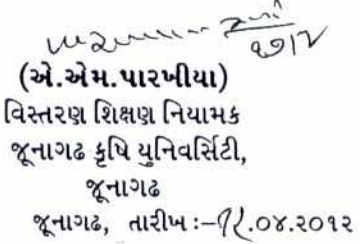 (એ.એમ.પારખીયા)
વિસ્તરણ શિક્ષણ નિયામક
જૂનાગઢ કૃષિ યુનિવર્સિટી,
જૂનાગઢ
જૂનાગઢ, તારીખ :-૧૨.૦૪.૨૦૧૨